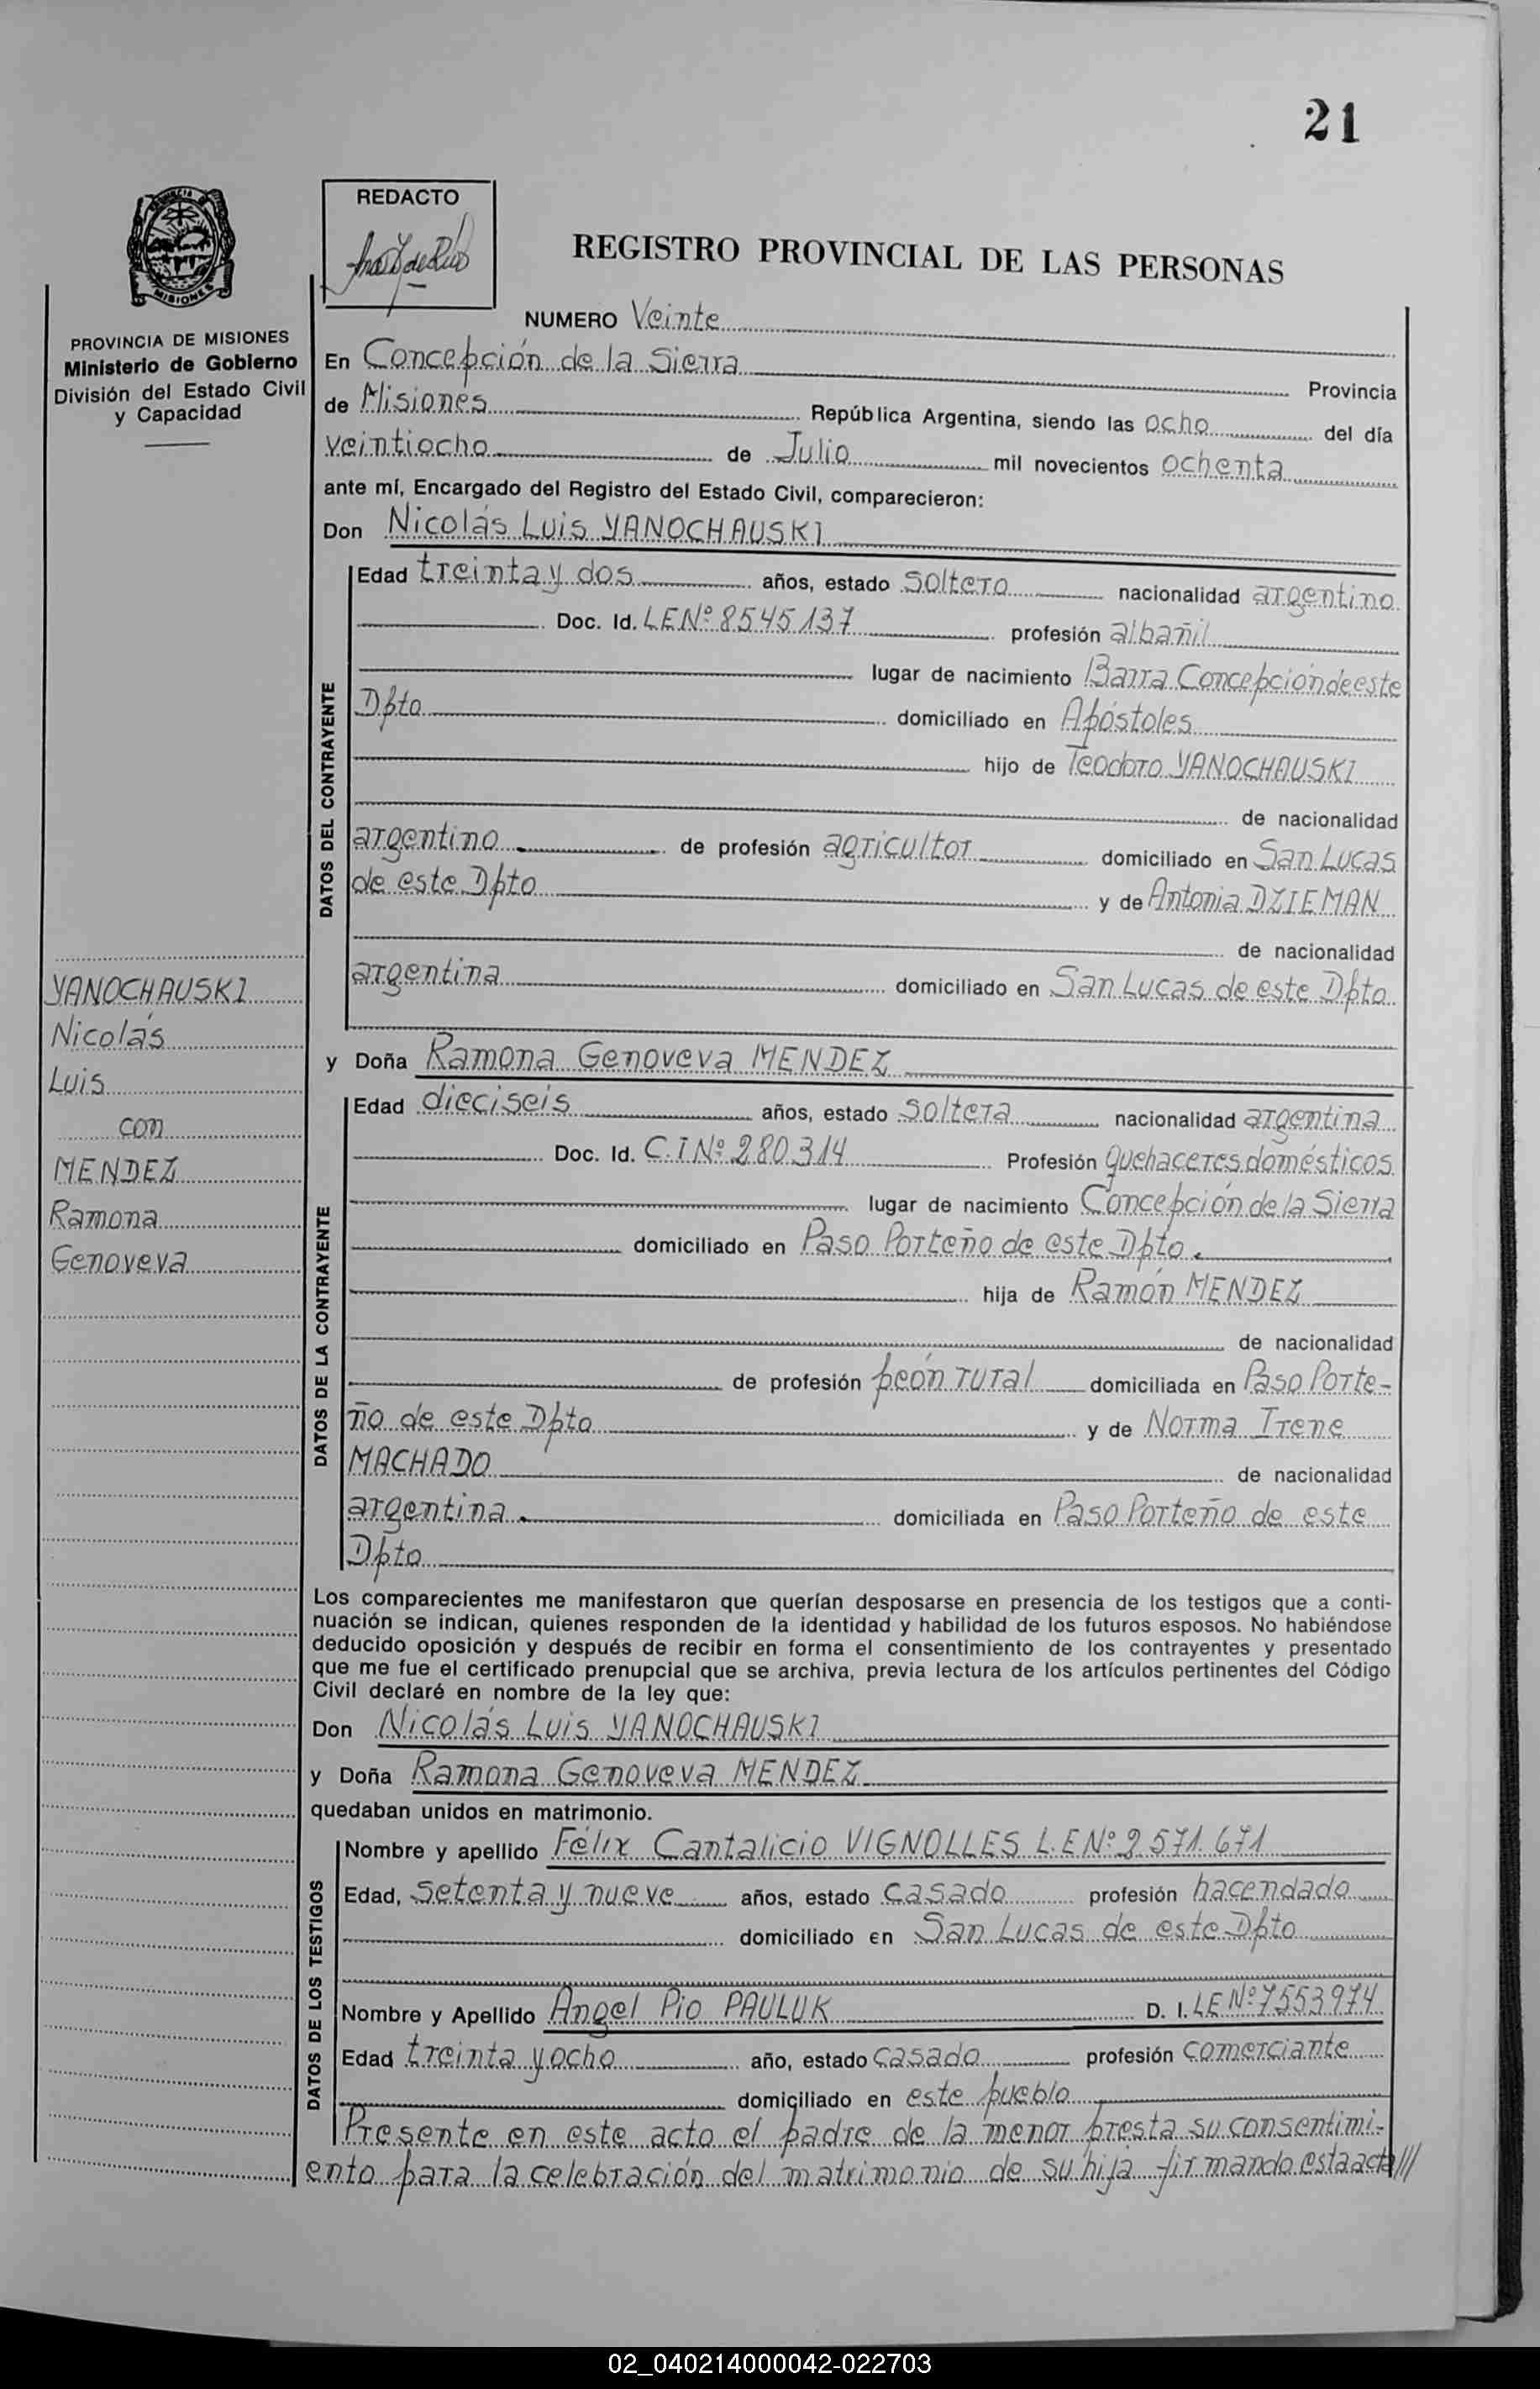 21
REDACTO
REGISTRO PROVINCIAL DE LAS PERSONAS
MISIONES
PROVINCIA DE MISIONES
Ministerio de Gobierno
División del Estado Civil
y Capacidad
NUMERO Veinte
En Concepción de la Sierra Provincia
de Misiones República Argentina, siendo las ocho del día
veintiocho de Julio mil novecientos ochenta
ante mí, Encargado del Registro del Estado Civil, comparecieron:
Don Nicolás Luis YANOCHAUSKI
DATOS DEL CONTRAYENTE
Edad treinta y dos años, estado soltero nacionalidad argentino
Doc. Id. LENº 8545137 profesión albañil
lugar de nacimiento Barra Concepción de este
Dpto domiciliado en Apóstoles
hijo de Teodoro YANOCHAUSKI
de nacionalidad
argentino de profesión agricultor domiciliado en San Lucas
de este Dpto y de Antonia DZIEMAN
de nacionalidad
argentina domiciliado en San Lucas de este Dpto
YANOCHAUSKI
Nicolás
Luis
con
MENDEZ
Ramona
Genoveva
y Doña Ramona Genoveva MENDEZ
DATOS DE LA CONTRAYENTE
Edad dieciseis años, estado soltera nacionalidad argentina
Doc. Id. C.I Nº 280.314 Profesión quehaceres domésticos
lugar de nacimiento Concepción de la Sierra
domiciliado en Paso Porteño de este Dpto.
hija de Ramón MENDEZ
de nacionalidad
de profesión peón rural domiciliada en Paso Porte-
ño de este Dpto y de Norma Irene
MACHADO de nacionalidad
argentina. domiciliada en Paso Porteño de este
Dpto
Los comparecientes me manifestaron que querían desposarse en presencia de los testigos que a conti-
nuación se indican, quienes responden de la identidad y habilidad de los futuros esposos. No habiéndose
deducido oposición y después de recibir en forma el consentimiento de los contrayentes y presentado
que me fue el certificado prenupcial que se archiva, previa lectura de los artículos pertinentes del Código
Civil declaré en nombre de la ley que:
Don Nicolás Luis YANOCHAUSKI
y Doña Ramona Genoveva MENDEZ
quedaban unidos en matrimonio.
DATOS DE LOS TESTIGOS
Nombre y apellido Félix Cantalicio VIGNOLLES L.E Nº 2.571.671
Edad, setenta y nueve años, estado casado profesión hacendado
domiciliado en San Lucas de este Dpto
Nombre y Apellido Angel Pio PAULUK D. I. LE Nº 7553974
Edad treinta y ocho año, estado casado profesión comerciante
domiciliado en este pueblo
Presente en este acto el padre de la menor presta su consentimi-
ento para la celebración del matrimonio de su hija firmando esta acta///
02_040214000042-022703